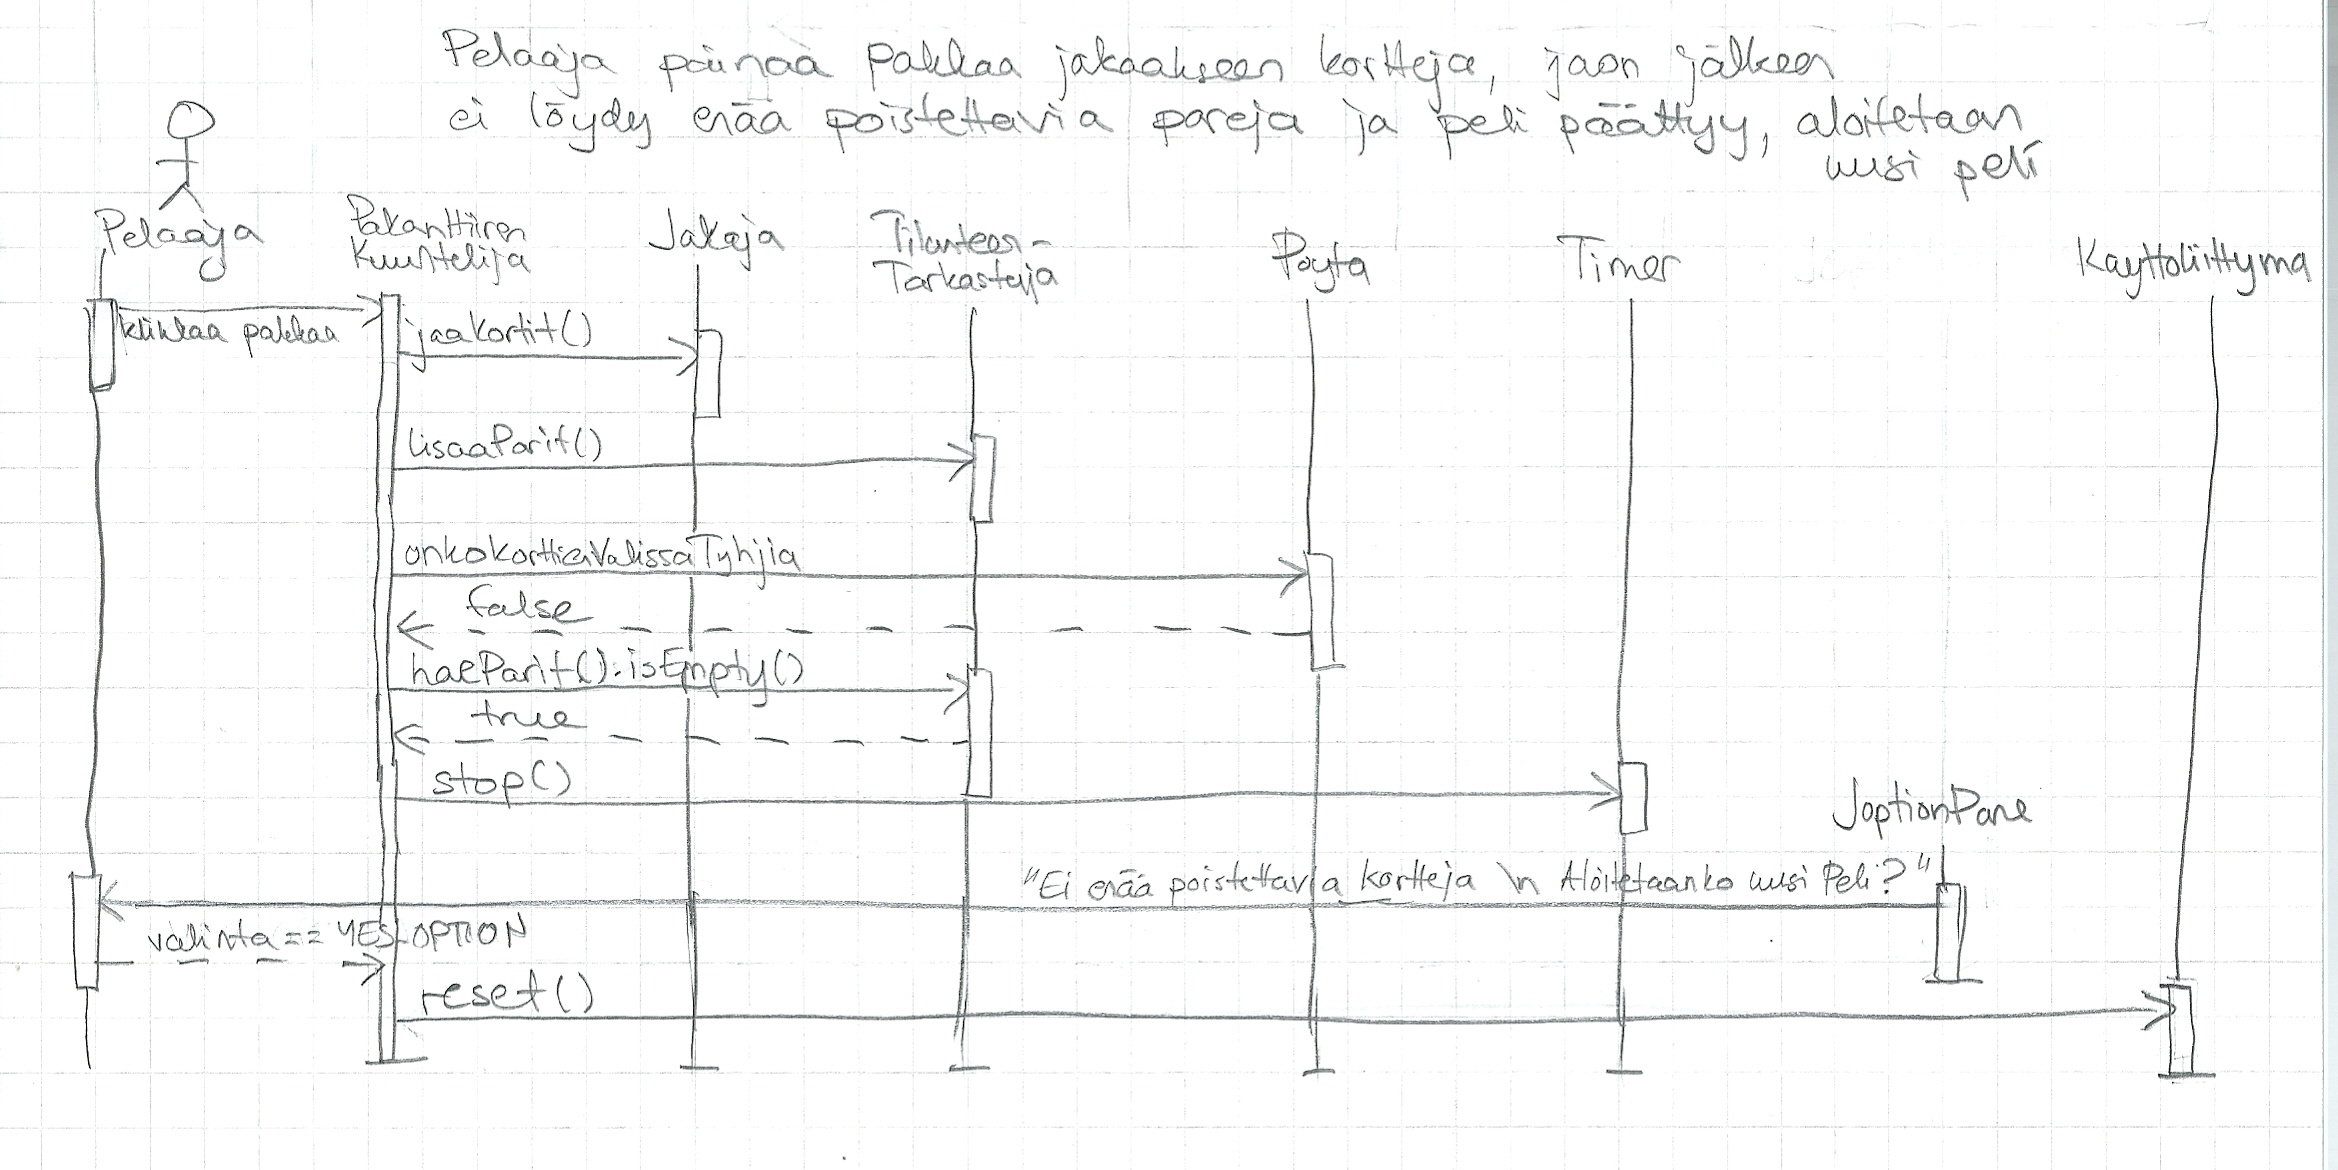 Pelaaja painaa pakkaa jakaakseen kortteja, jaon jälkeen
ei löydy enää poistettavia pareja ja peli päättyy, aloitetaan
uusi peli
Pelaaja
Pakanhiiren
Kuuntelija
Jakaja
Tilanteen-
Tarkastaja
Poyta
Timer
Kayttoliittyma
klikkaa pakkaa
jaaKortit()
lisaaParit()
onkoKorttienValissaTyhjia
false
haeParit().isEmpty()
true
stop()
JoptionPane
"Ei enää poistettavia kortteja \n Aloitetaanko uusi Peli?"
valinta == YES_OPTION
reset()